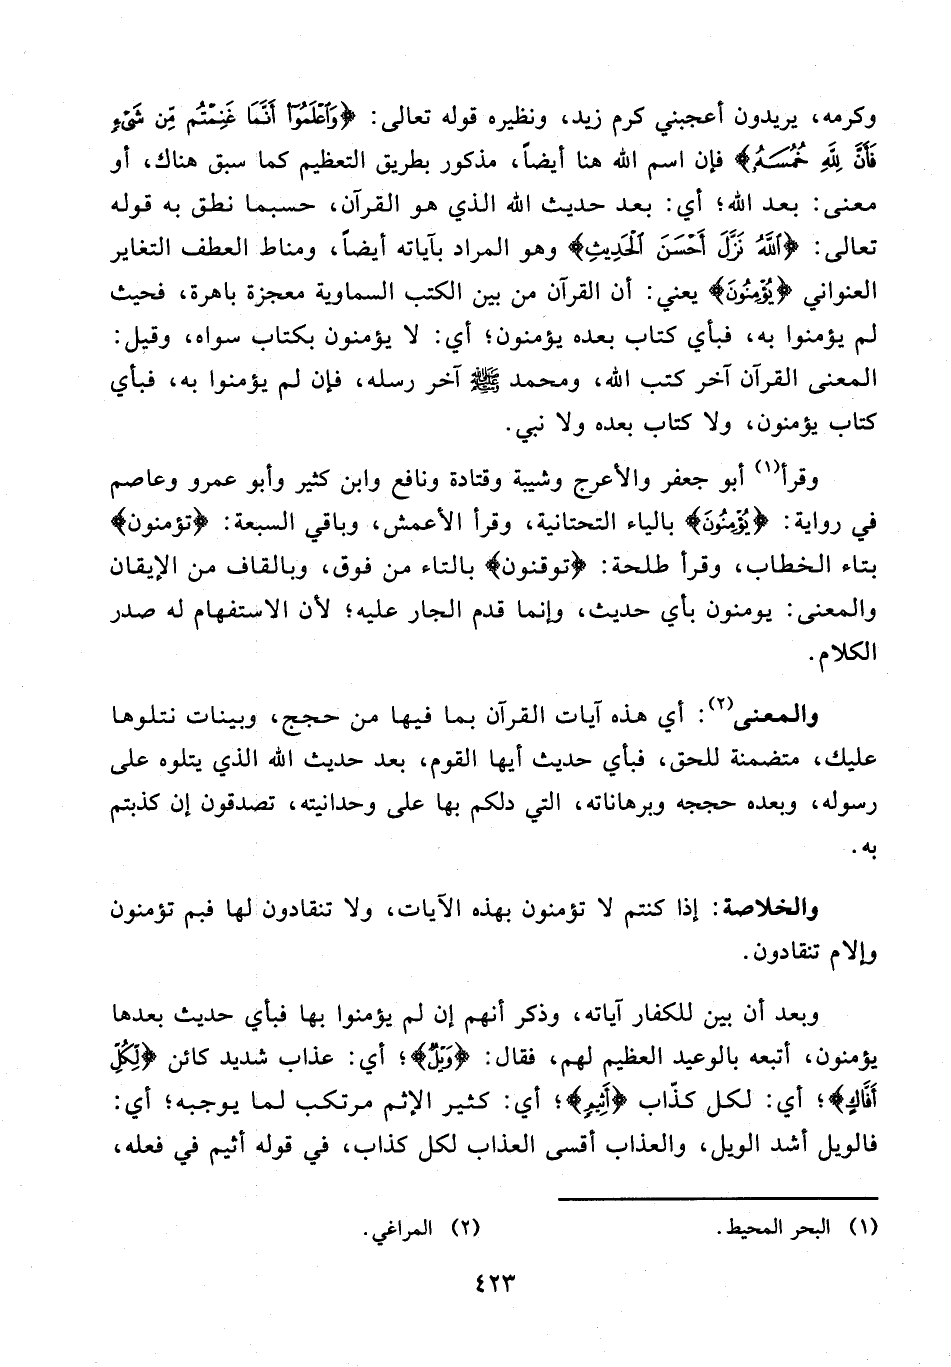 وكرمه، يريدون أعجبني كرم زيد، ونظيره قوله تعالى: ﴿وَاعْلَمُوا أَنَّمَا غَنِمْتُم مِّن شَيْءٍ
فَأَنَّ لِلَّهِ خُمُسَهُ﴾ فإن اسم الله هنا أيضاً، مذكور بطريق التعظيم كما سبق هناك، أو
معنى: بعد الله؛ أي: بعد حديث الله الذي هو القرآن، حسبما نطق به قوله
تعالى: ﴿اللَّهُ نَزَّلَ أَحْسَنَ الْحَدِيثِ﴾ وهو المراد بآياته أيضاً، ومناط العطف التغاير
العنواني ﴿يُؤْمِنُونَ﴾ يعني: أن القرآن من بين الكتب السماوية معجزة باهرة، فحيث
لم يؤمنوا به، فبأي كتاب بعده يؤمنون؛ أي: لا يؤمنون بكتاب سواه، وقيل:
المعنى القرآن آخر كتب الله، ومحمد ﷺ آخر رسله، فإن لم يؤمنوا به، فبأي
كتاب يؤمنون، ولا كتاب بعده ولا نبي.
وقرأ(١) أبو جعفر والأعرج وشيبة وقتادة ونافع وابن كثير وأبو عمرو وعاصم
في رواية: ﴿يُؤْمِنُونَ﴾ بالياء التحتانية، وقرأ الأعمش، وباقي السبعة: ﴿تؤمنون﴾
بتاء الخطاب، وقرأ طلحة: ﴿توقنون﴾ بالتاء من فوق، وبالقاف من الإيقان
والمعنى: يومنون بأي حديث، وإنما قدم الجار عليه؛ لأن الاستفهام له صدر
الكلام.
والمعنى(٢): أي هذه آيات القرآن بما فيها من حجج، وبينات نتلوها
عليك، متضمنة للحق، فبأي حديث أيها القوم، بعد حديث الله الذي يتلوه على
رسوله، وبعده حججه وبرهاناته، التي دلكم بها على وحدانيته، تصدقون إن كذبتم
به.
والخلاصة: إذا كنتم لا تؤمنون بهذه الآيات، ولا تنقادون لها فبم تؤمنون
وإلام تنقادون.
وبعد أن بين للكفار آياته، وذكر أنهم إن لم يؤمنوا بها فبأي حديث بعدها
يؤمنون، أتبعه بالوعيد العظيم لهم، فقال: ﴿وَيْلٌ﴾؛ أي: عذاب شديد كائن ﴿لِّكُلِّ
أَفَّاكٍ﴾؛ أي: لكل كذّاب ﴿أَثِيمٍ﴾؛ أي: كثير الإثم مرتكب لما يوجبه؛ أي:
فالويل أشد الويل، والعذاب أقسى العذاب لكل كذاب، في قوله أثيم في فعله،
(١) البحر المحيط. (٢) المراغي.
٤٢٣